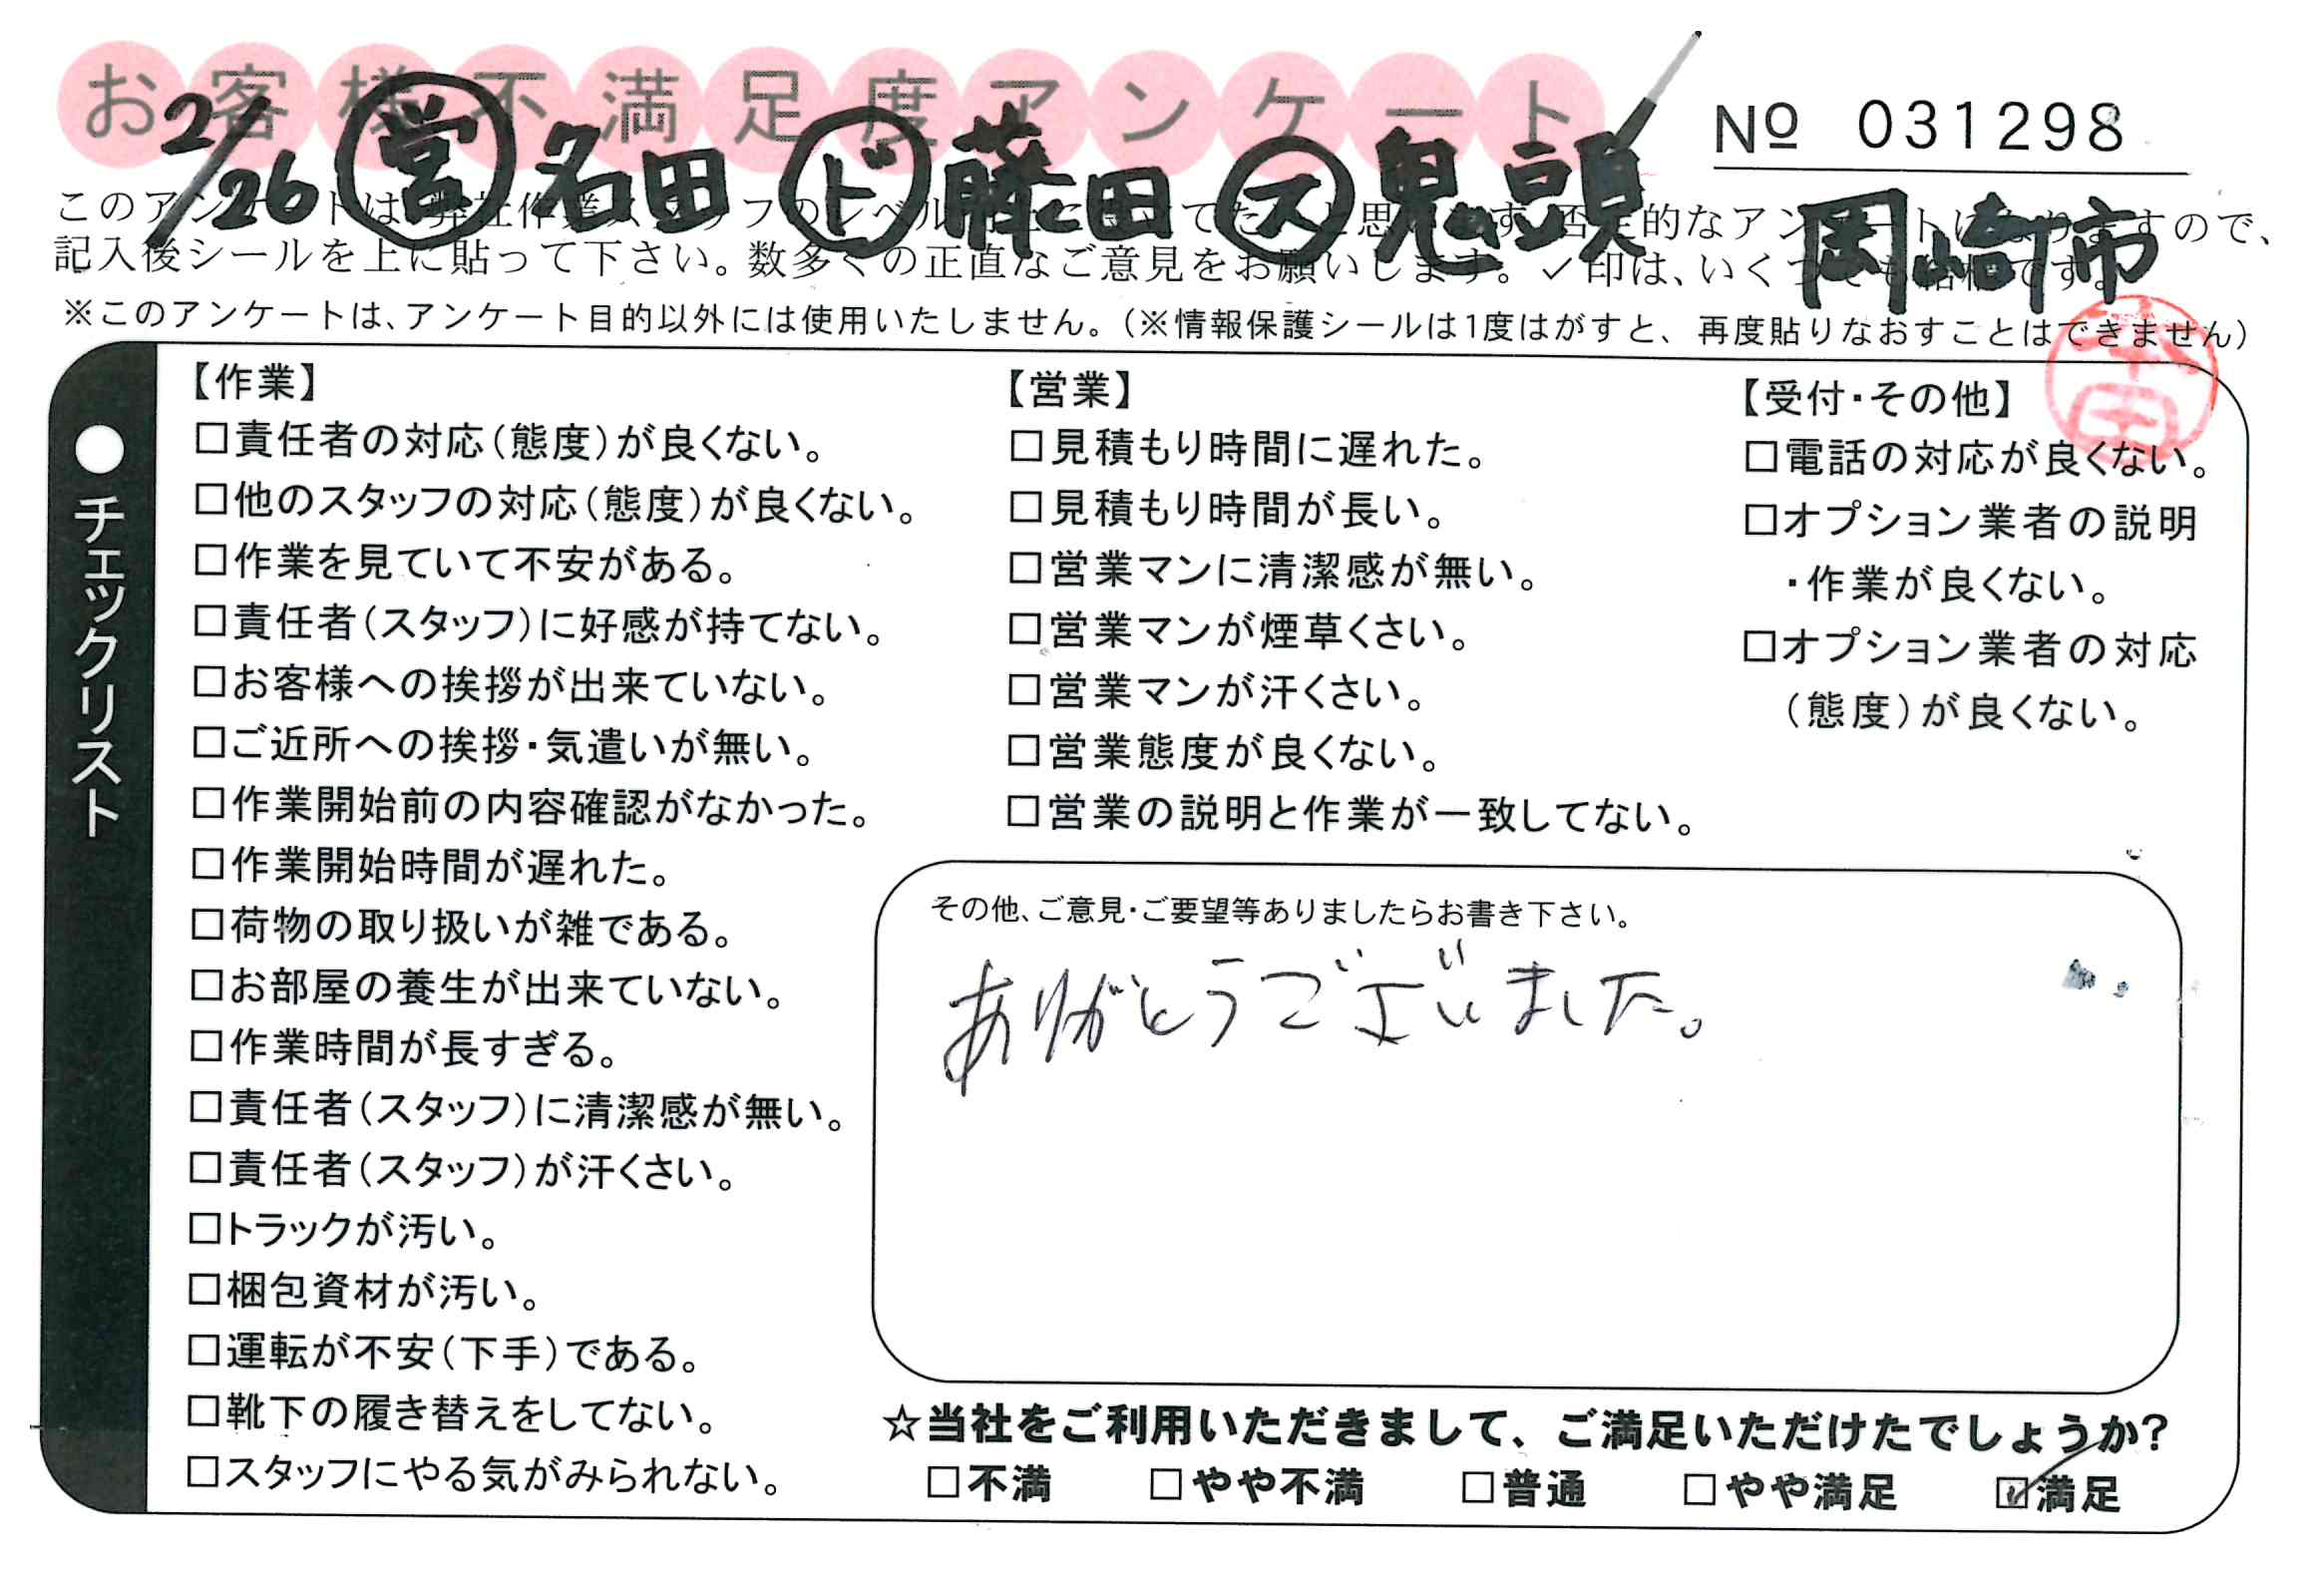 お客様不満足度アンケート
2/26 営 名田 ド 藤田 ス 鬼頭
No 031298
岡崎市
記入後シールを上に貼って下さい。数多くの正直なご意見をお願いします。✓印は、いく
※このアンケートは、アンケート目的以外には使用いたしません。（※情報保護シールは1度はがすと、再度貼りなおすことはできません）
本田
●チェックリスト
【作業】
□責任者の対応（態度）が良くない。
□他のスタッフの対応（態度）が良くない。
□作業を見ていて不安がある。
□責任者（スタッフ）に好感が持てない。
□お客様への挨拶が出来ていない。
□ご近所への挨拶・気遣いが無い。
□作業開始前の内容確認がなかった。
□作業開始時間が遅れた。
□荷物の取り扱いが雑である。
□お部屋の養生が出来ていない。
□作業時間が長すぎる。
□責任者（スタッフ）に清潔感が無い。
□責任者（スタッフ）が汗くさい。
□トラックが汚い。
□梱包資材が汚い。
□運転が不安（下手）である。
□靴下の履き替えをしてない。
□スタッフにやる気がみられない。
【営業】
□見積もり時間に遅れた。
□見積もり時間が長い。
□営業マンに清潔感が無い。
□営業マンが煙草くさい。
□営業マンが汗くさい。
□営業態度が良くない。
□営業の説明と作業が一致してない。
【受付・その他】
□電話の対応が良くない。
□オプション業者の説明
・作業が良くない。
□オプション業者の対応
（態度）が良くない。
その他、ご意見・ご要望等ありましたらお書き下さい。
ありがとうございました。
☆当社をご利用いただきまして、ご満足いただけたでしょうか？
□不満 □やや不満 □普通 □やや満足 ☑満足